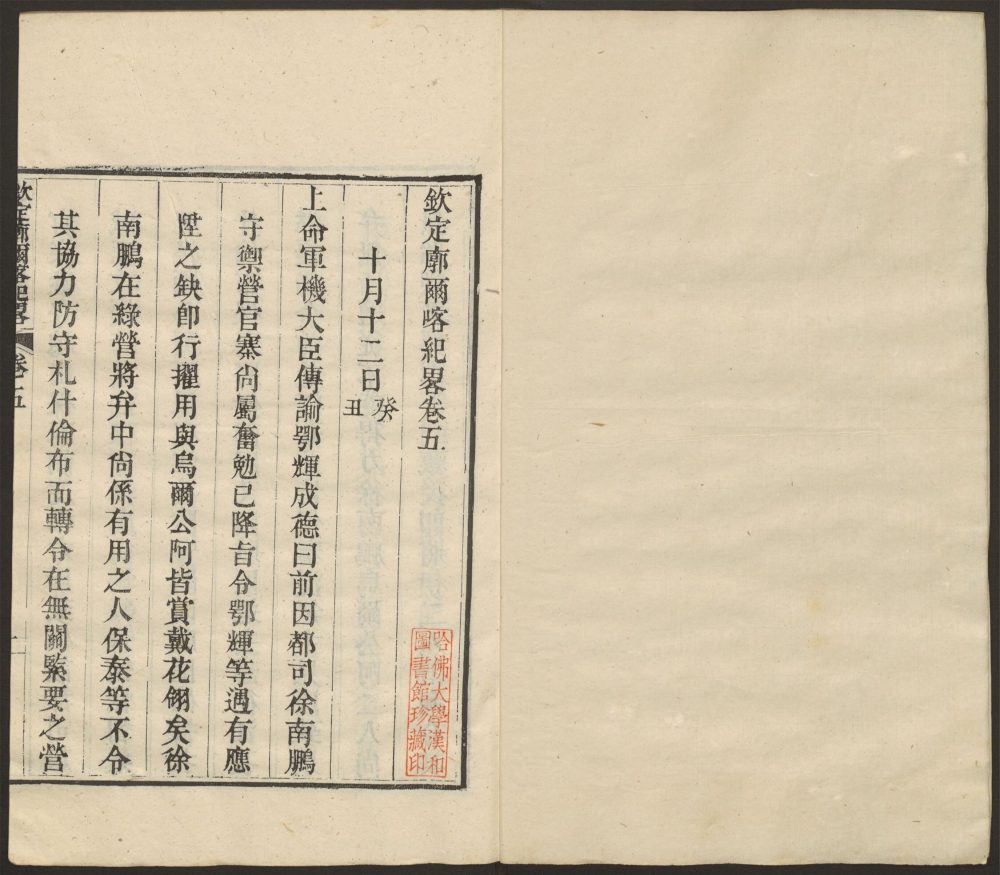 欽定廓爾喀紀畧卷五
十月十二日癸丑
上命軍機大臣傳諭鄂輝成德曰前因都司徐南鵬
守禦營官寨尚屬奮勉已降旨令鄂輝等遇有應
陞之缺卽行擢用與烏爾公阿皆賞戴花翎矣徐
南鵬在綠營將弁中尚係有用之人保泰等不令
其協力防守札什倫布而轉令在無關緊要之營
欽定廓爾喀紀畧 卷五 一
哈佛大學漢和
圖書館珍藏印